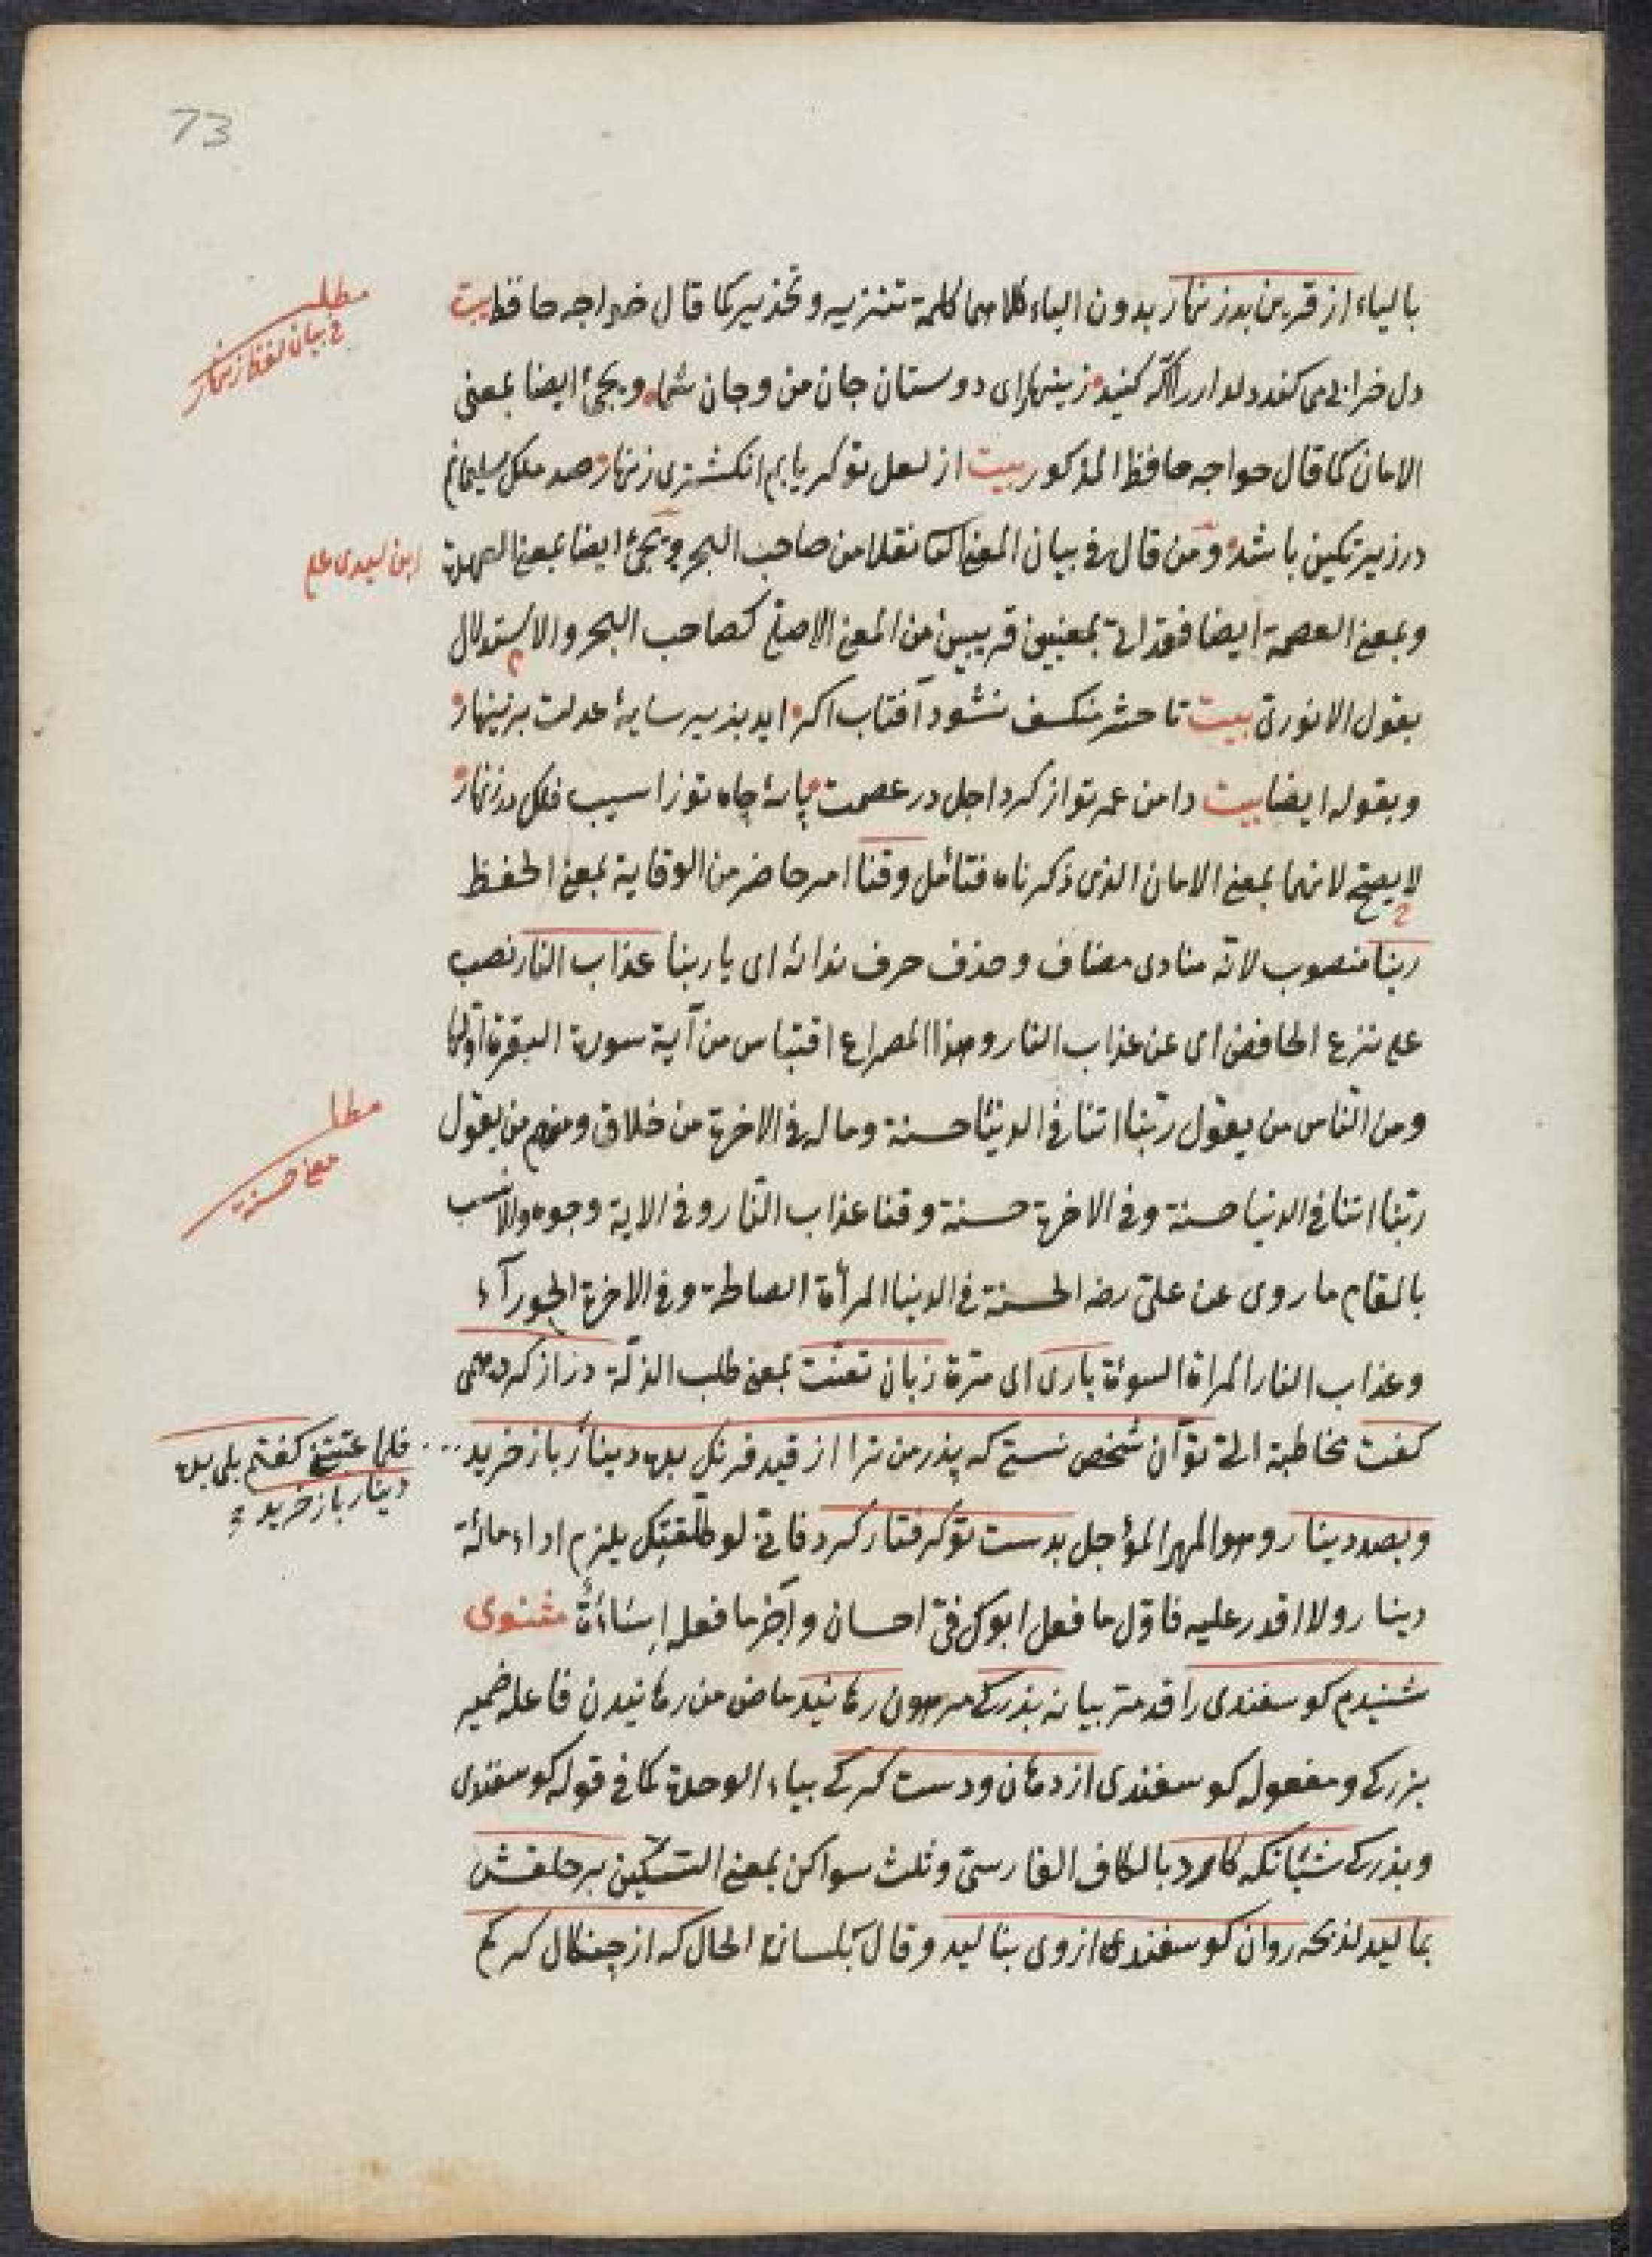 73
بالياء از قرين بد زنهار بدون الياء كلاهما كلمة تنزيه وتحذير كما قال خواجه حافظ بيت
مطلب
في بيان لفظ زنهار
دل خرابى مى كند دلدار را اكه كنيد زينهار اى دوستان جان من و جان شما ويجئ ايضا بمعنى
الامان كما قال خواجه حافظ المذكور بيت از لعل تو كر يابم انكشترى زنهار صد ملك سليمانم
در زير نكين باشد ومن قال في بيان المعنى نقلا من صاحب البحر ويجئ ايضا بمعنى المهلة
ابن ليدى علم
وبمعنى العصمة ايضا فقد اتى بمعنيين قريبين من المعنى الاصلى كصاحب البحر والاستدلال
بقول الانورى بيت تا حشر منكسف نشود آفتاب اكر ايد بزير سايهٔ عدلت بزينهار
وبقوله ايضا بيت دامن عمر تو از كرد اجل در عصمت پايهٔ جاه تو ز اسيب فلك در زنهار
لا يصح لانهما بمعنى الامان الذى ذكرناه فتأمل وقنا امر حاضر من الوقاية بمعنى الحفظ
ربنا منصوب لانه منادى مضاف وحذف حرف ندائه اى يا ربنا عذاب النار نصب
على نزع الخافض اى عن عذاب النار وهذا المصراع اقتباس من آية سورة البقرة اولها
ومن الناس من يقول ربنا اتنا في الدنيا حسنة وما له في الاخرة من خلاق ومنهم من يقول
مطلب
معنى حسنة
ربنا اتنا في الدنيا حسنة وفي الاخرة حسنة وقنا عذاب النار وفي الاية وجوه والانسب
بالمقام ما روى عن على رضه الحسنة في الدنيا المرأة الصالحة وفي الاخرة الحوراء
وعذاب النار المراة السوءة بارى اى مرة زبان تعنت بمعنى طلب الذلة دراز كرده همى
كفت مخاطبة الى تو آن شخص نستى كه پدر من ترا از قيد فرنك بده دينار باز خريد
فلما عتنى كفتم بلى بده
دينار باز خريد
وبصد دينار وهو المهر المؤجل بدست تو كرفتار كرد فانى لو طلقتك يلزم اداء مائة
دينار ولا اقدر عليه فاول ما فعل ابوك في احسان وآخر ما فعله اساءة مثنوى
شنيدم كوسفندى را قد مر بيانه بزركى مرهون رهانيد ماض من رهانيدن فاعله ضمير
بزركى ومفعوله كوسفندى از دهان ودست كركى بياء الوحدة كما في قوله كوسفندى
وبزركى شبانكه كارد بالكاف الفارسى وثلث سواكن بمعنى السكين بر حلقش
بماليد لذبحه روان كوسفندى از وى بناليد وقال بلسان الحال كه از چنكال كركم